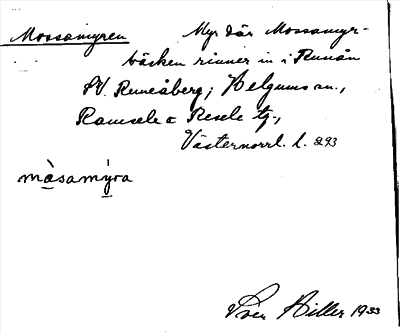 Mossamyren Myr där Mossamyr-
bäcken rinner in i Runån
SV. Runeåberg; Helgums sn.,
Ramsele o Resele tg.,
Västernorrl. l. 293
màsamỳra
Sven Hiller 1933